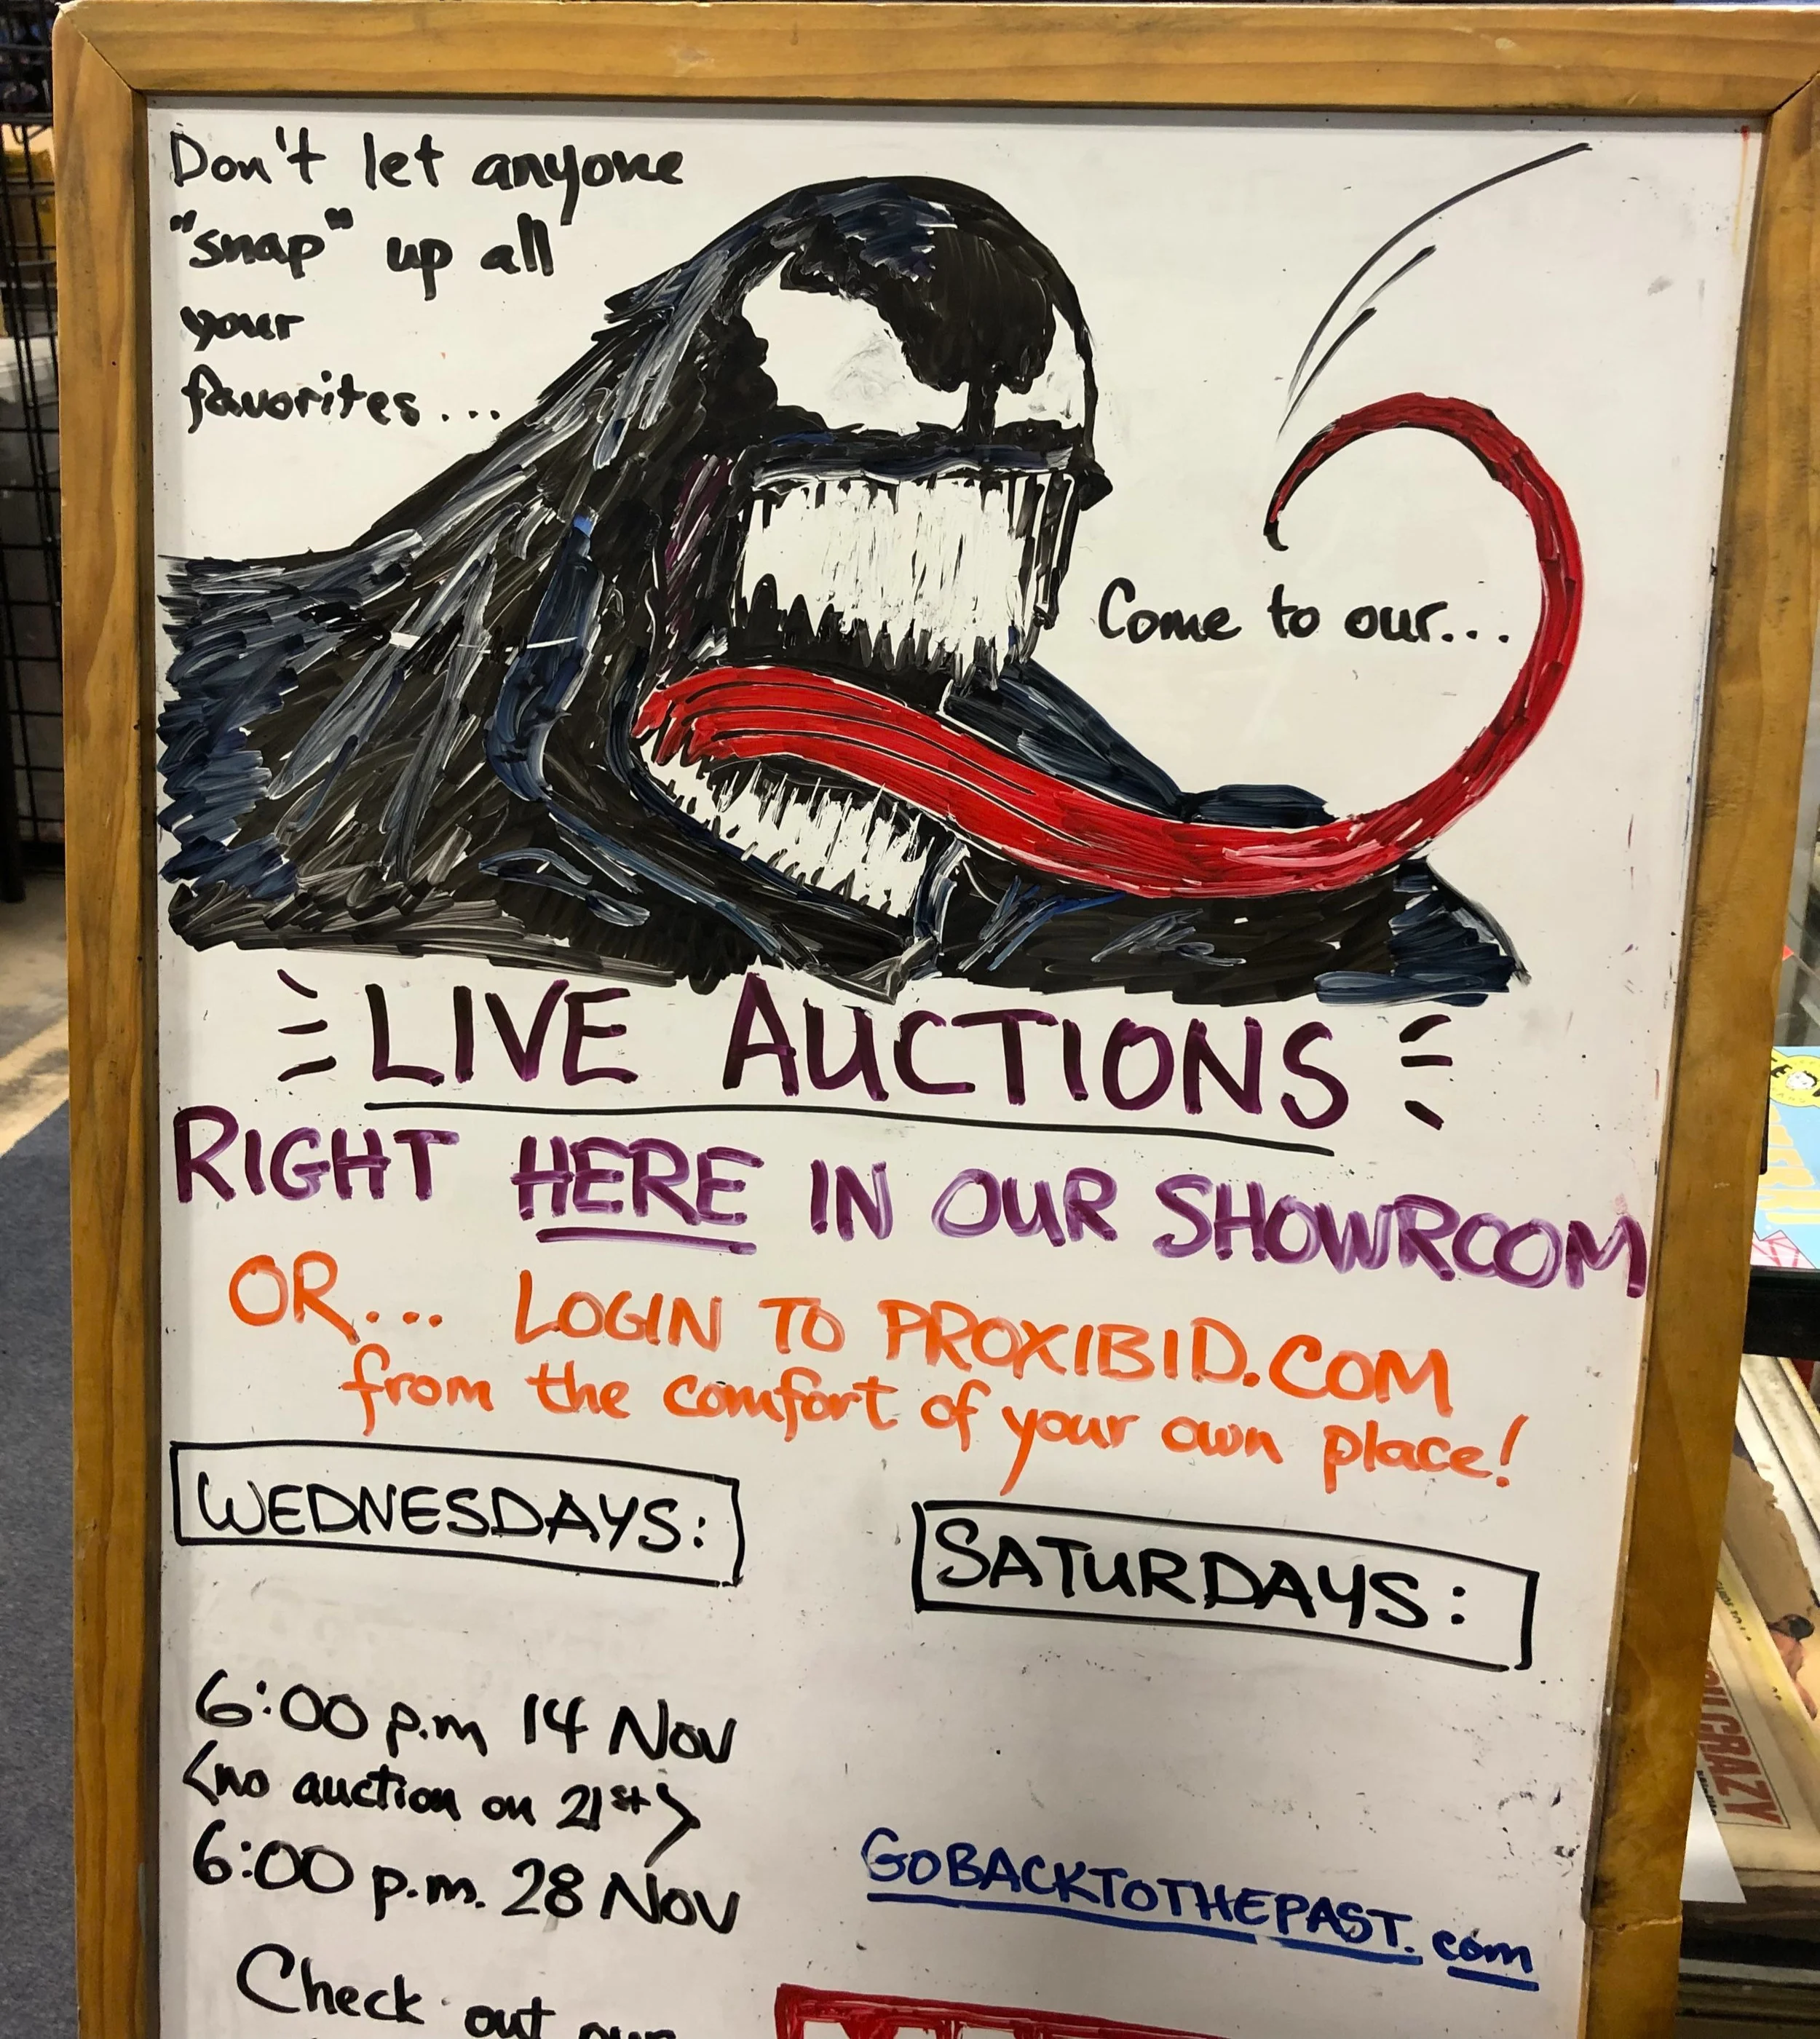 Don't let anyone
"snap" up all
your
favorites...
Come to our...
LIVE AUCTIONS
RIGHT HERE IN OUR SHOWROOM
OR... LOGIN TO PROXIBID.COM
from the comfort of your own place!
WEDNESDAYS:
SATURDAYS:
6:00 p.m 14 Nov
<no auction on 21st>
6:00 p.m. 28 Nov
GOBACKTOTHEPAST.com
Check out our
CRAZY